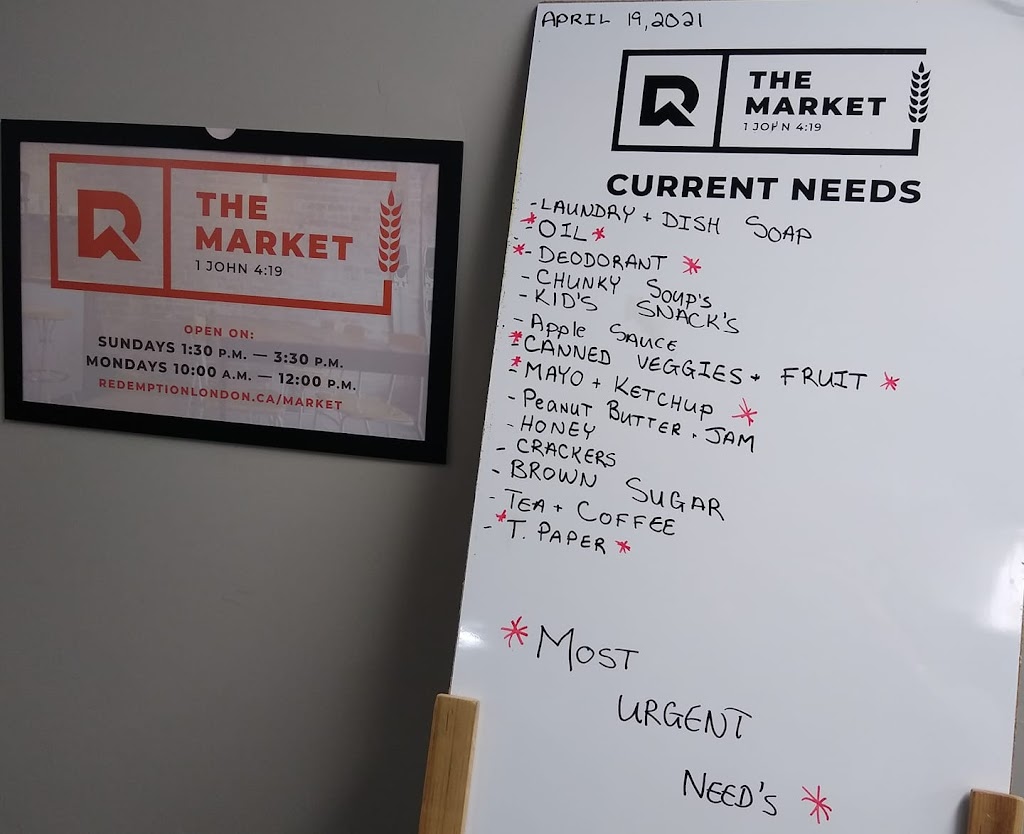 THE
MARKET
1 JOHN 4:19
OPEN ON:
SUNDAYS 1:30 P.M. — 3:30 P.M.
MONDAYS 10:00 A.M. — 12:00 P.M.
REDEMPTIONLONDON.CA/MARKET
APRIL 19, 2021
THE
MARKET
1 JOHN 4:19
CURRENT NEEDS
- LAUNDRY + DISH SOAP
*- OIL *
*- DEODORANT *
- CHUNKY SOUP'S
- KID'S SNACK'S
- Apple SAUCE
*- CANNED VEGGIES + FRUIT *
*- MAYO + KETCHUP *
- PEANUT BUTTER + JAM
- HONEY
- CRACKERS
- BROWN SUGAR
- TEA + COFFEE
-* T. PAPER *
* MOST
URGENT
NEED'S *